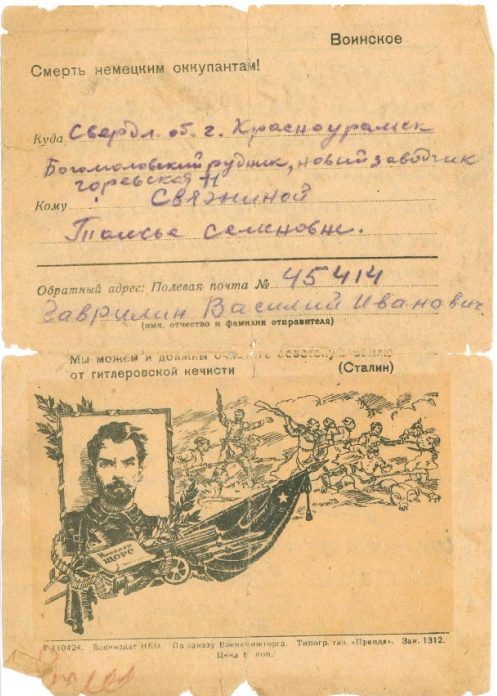 Воинское
Смерть немецким оккупантам!
Куда Свердл. об. г. Красноуральск
Богомоловский рудник, новий
горевская 11
Кому Свяжиной
Таисье семеновне.
Обратный адрес: Полевая почта № 45414
Гаврилин Василий Иванович
(имя, отчество и фамилия отправителя)
Мы можем и должны советскую землю
от гитлеровской нечисти (Сталин)
Николай
ЩОРС
Г-110424. Воениздат НКО По заказу Военкнижторга. Типогр. газ. «Правда». Зак. 1312.
Цена коп.